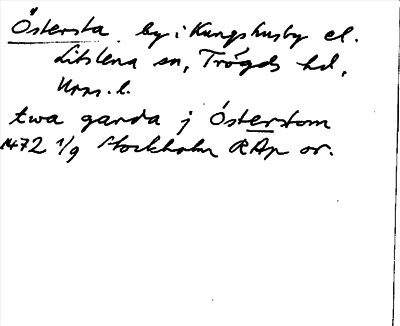 Östersta by i Kungshusby el.
Litslena sn, Trögds hd,
Upps. l.
twa garda j Østerstom
1472 1/9 Stockholm RAp or.